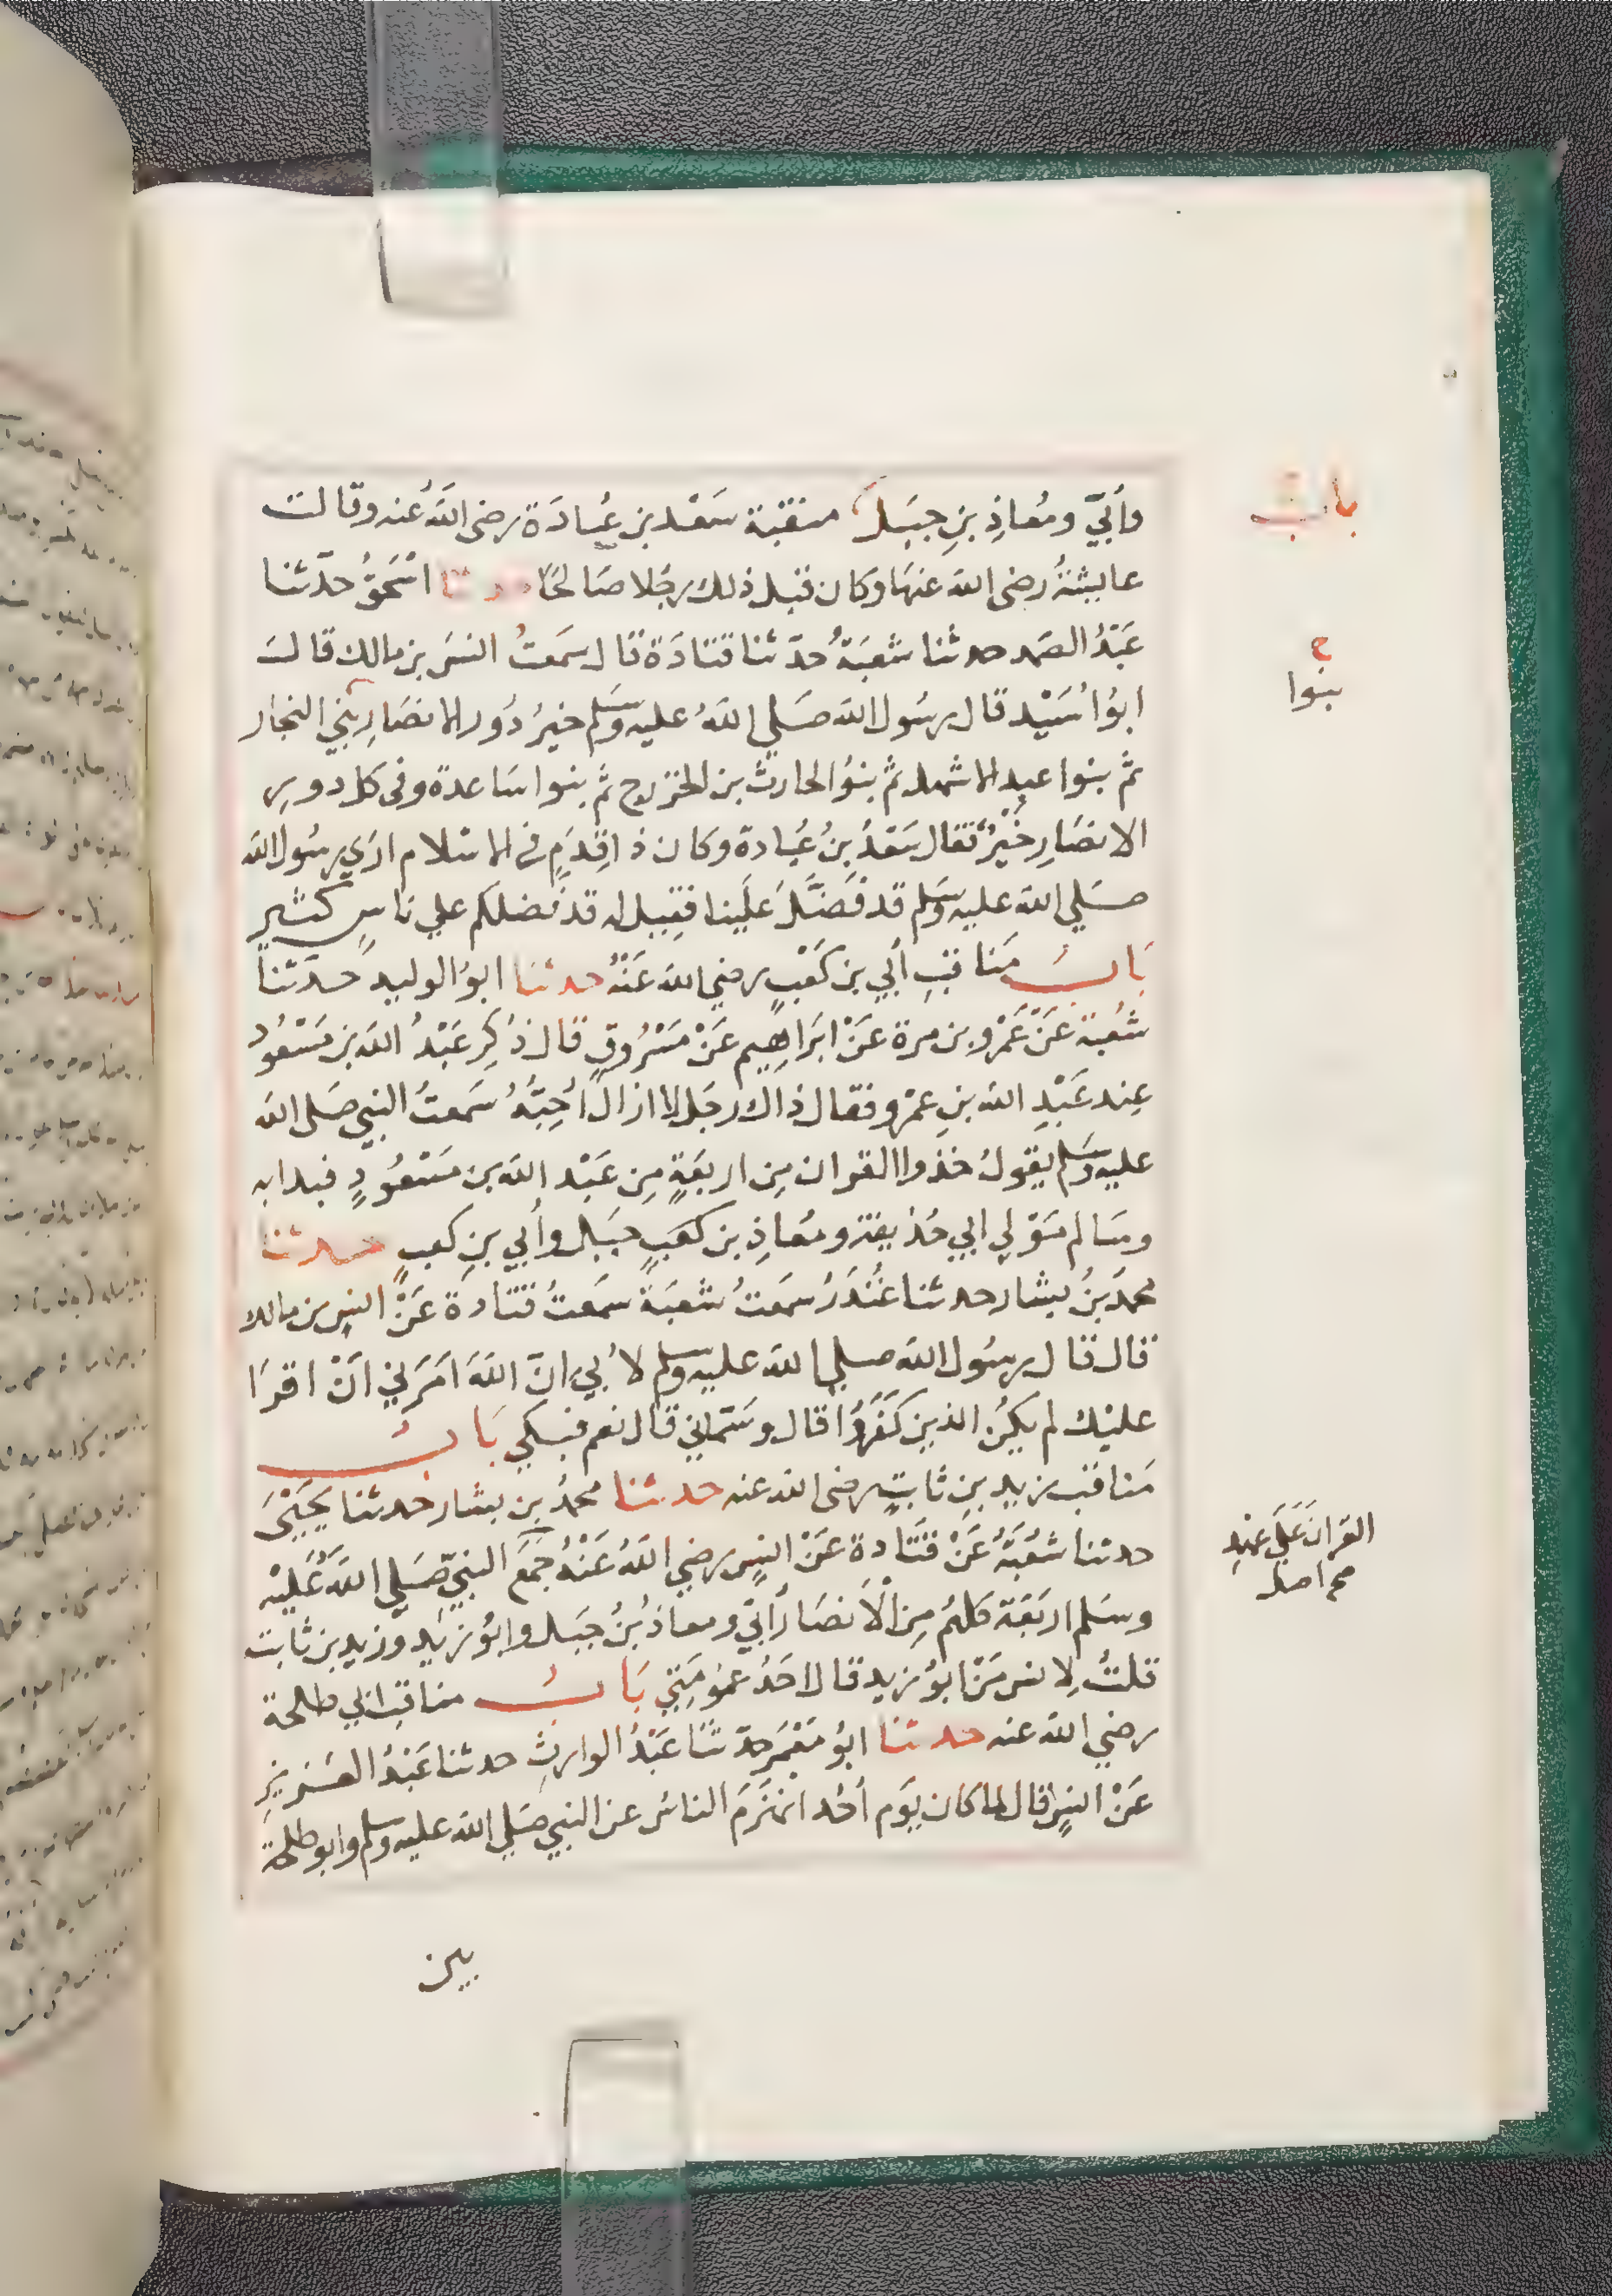 باب
وأبيّ ومُعاذِ بنِ جبَلَ منقبة سَعْد بن عُبادَة رضى اللَّه عنه وقالت
عايشةُ رضى الله عنهَا وكان قبل ذلك رجَلا صَالحًا حدثنا اسْحٰقُ حدّثنا
عَبْدُ الصَمد حدثنا شعبَةُ حدّثنا قتادَة قال سَمعتُ انسَ بن مالك قالَ
ح
بنوا
ابوُ اُسَيْد قال رسُول الله صَلي اللهُ عليه وسَلم خيرُ دُور الانصَارِ بني النجار
ثمَّ بنوا عبدِ الاشهل ثمَّ بنوُ الحارث بن الخزرج ثم بنوا سَاعدة وفى كل دورِ
الانصَارِ خَيْرٌ فقال سَعْدُ بنُ عُبادة وكان ذا قِدَمٍ فى الاسْلام ارَي رسُول الله
صَلي الله عليه وسَلم قد فَضَّلَ عَلَينا فقِيل له قد فضلكم علي ناسٍ كثيرٍ
بَابُ مَناقبِ أبي بن كَعْبٍ رضي الله عَنْهُ حدثنا ابوُ الوليد حَدثنا
شعُبة عَنْ عَمْرو بن مرة عَنْ ابرَاهِيم عَنْ مَسْرُوقٍ قال ذُكِر عَبْدُ الله بن مَسْعُودُ
عِند عَبْدِ الله بنِ عمْرو فقال ذاك رجَل لا ازال اُحِبُّهُ سَمعتُ النبي صَلى الله
عليه وسَلم يقولُ خذوا القران مِن اربعَةٍ مِن عَبْد الله بن مَسْعُودٍ فبدا به
وسَالم مَوْلي ابي حُذيفة ومُعَاذِ بن كعَبٍ جبَل وأبي بنِ كعبٍ حدثنا
محمدُ بنُ بشار حدثنا غُنْدَرُ سَمعتُ شعبَة سَمعتُ قتادة عَنْ انسِ بن مالك
قال قال رسُول الله صلي الله عليه وسلم لأبي انّ اللهَ امَرَني اَنْ اقرَا
عليْك لم يكُنِ الذين كَفَرُوُا قال وسَمّاني قال نعم فبكي بَابُ
مَناقب زيد بنِ ثابتٍ رضى الله عنه حدثنا محمدُ بن بشار حدثنا يَحْيَى
حدثنا شعُبَةُ عَنْ قتَادة عَنْ انسٍ رضي اللهُ عَنْهُ جمَعَ النبيّ صَلي اللهُ عَلَيْه
القرانَ عَلَى عهْدِ
صح اصل
وسَلم اربَعَة كلهُم مِن الْاَنصَار اُبيّ ومعاذُ بْنُ جَبَل وابوُ زيَدٍ وزيد بن ثابت
قلتُ لِانس مَنْ ابوُ زيد قال احَدُ عمُومَتِي بَابُ مناقب ابي طلحة
رضي الله عنه حدثنا ابوُ مَعْمَر حَدّثنَا عَبْدُ الوارثِ حدثنا عَبْدُ العَزيزِ
عَنْ انسٍ قال لما كان يَوم اُحُد انهَزَمَ الناسُ عن النبي صَلي الله عليه وسلم وابو طلحة
بين